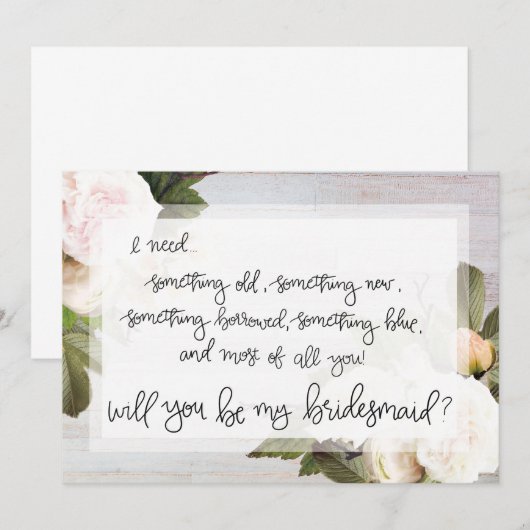 I need...
something old, something new,
something borrowed, something blue,
and most of all you!
will you be my bridesmaid?